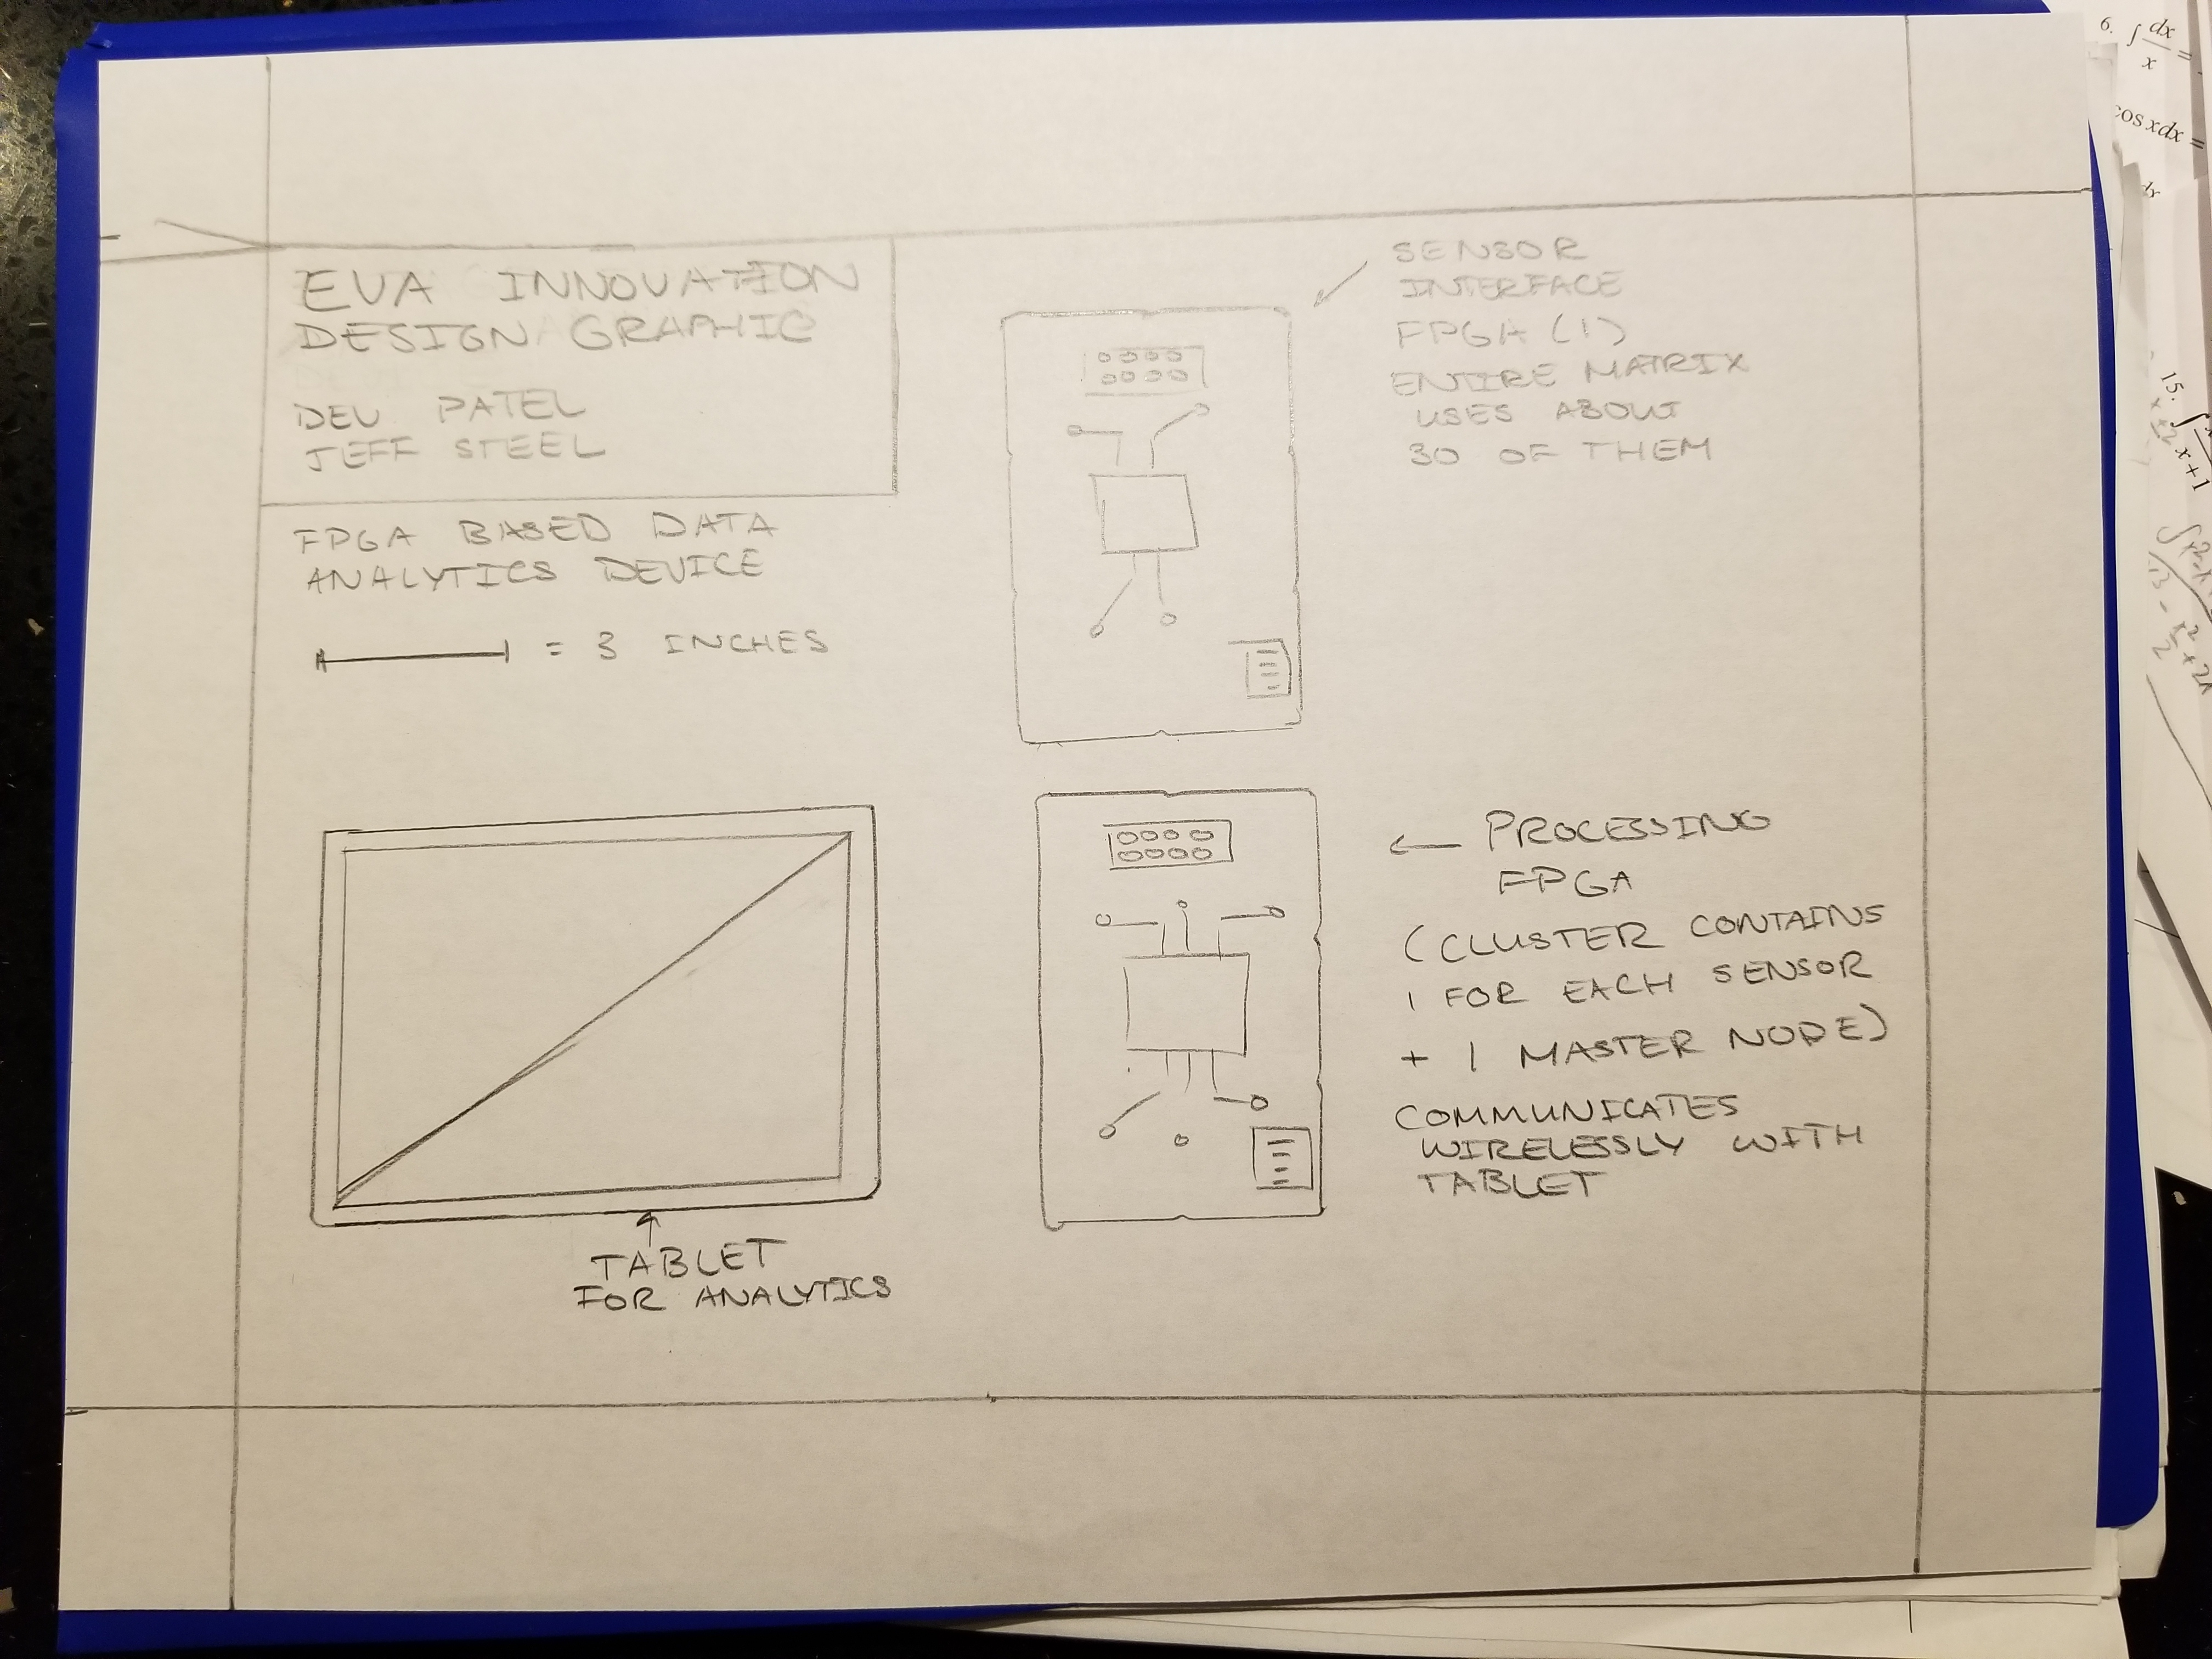 EVA INNOVATION
DESIGN GRAPHIC
DEV PATEL
JEFF STEEL
FPGA BASED DATA
ANALYTICS DEVICE
= 3 INCHES
SENSOR
INTERFACE
FPGA (1)
ENTIRE MATRIX
USES ABOUT
30 OF THEM
PROCESSING
FPGA
(CLUSTER CONTAINS
1 FOR EACH SENSOR
+ 1 MASTER NODE)
COMMUNICATES
WIRELESSLY WITH
TABLET
TABLET
FOR ANALYTICS
6. ∫ dx/x =
cos x dx =
15.
x+1